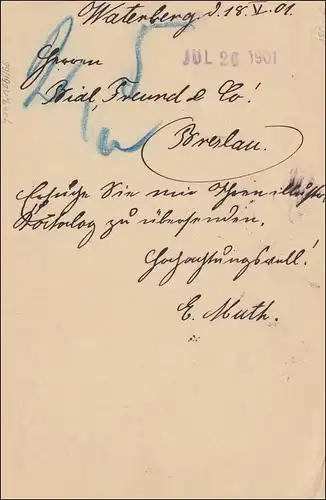 Waterberg d. 18. V. 01.
JUL 20 1901
Herren
Bial, Freund & Co!
Breslau.
Ersuche Sie mir Ihren illustr.
Katalog zu übersenden.
Hochachtungsvoll!
E. Muth.